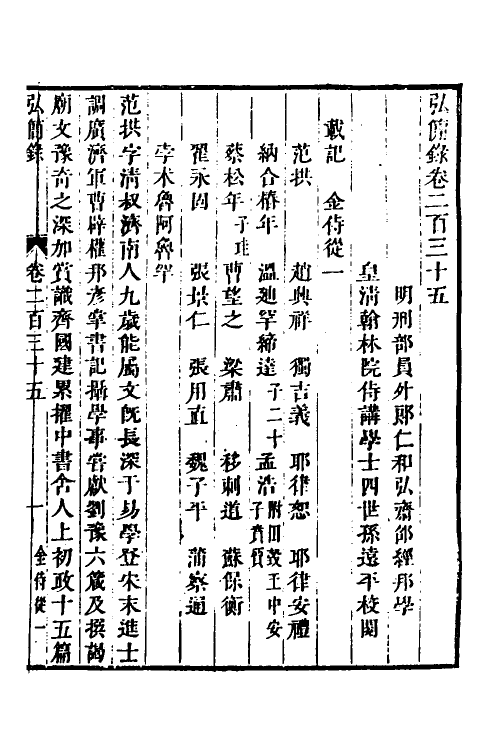 弘簡錄卷二百三十五
明刑部員外郎仁和弘齋邵經邦學
皇清翰林院侍講學士四世孫遠平校閱
載記 金侍從一
范拱 趙興祥 獨吉義 耶律恕 耶律安禮
納合椿年 溫迪罕締達 子二十 孟浩 附田瑴王中安子賁質
蔡松年 子珪 曹望之 梁肅 移剌道 蘇保衡
翟永固 張景仁 張用直 魏子平 蒲察通
孛术魯阿魯罕
范拱字清叔濟南人九歲能屬文既長深于易學登宋末進士
調廣濟軍曹辟權邦彥掌書記攝學事嘗獻劉豫六箴及撰謁
廟文豫奇之深加賞識齊國建累擢中書舍人上初政十五篇
弘簡錄 卷二百三十五 一 金侍從一